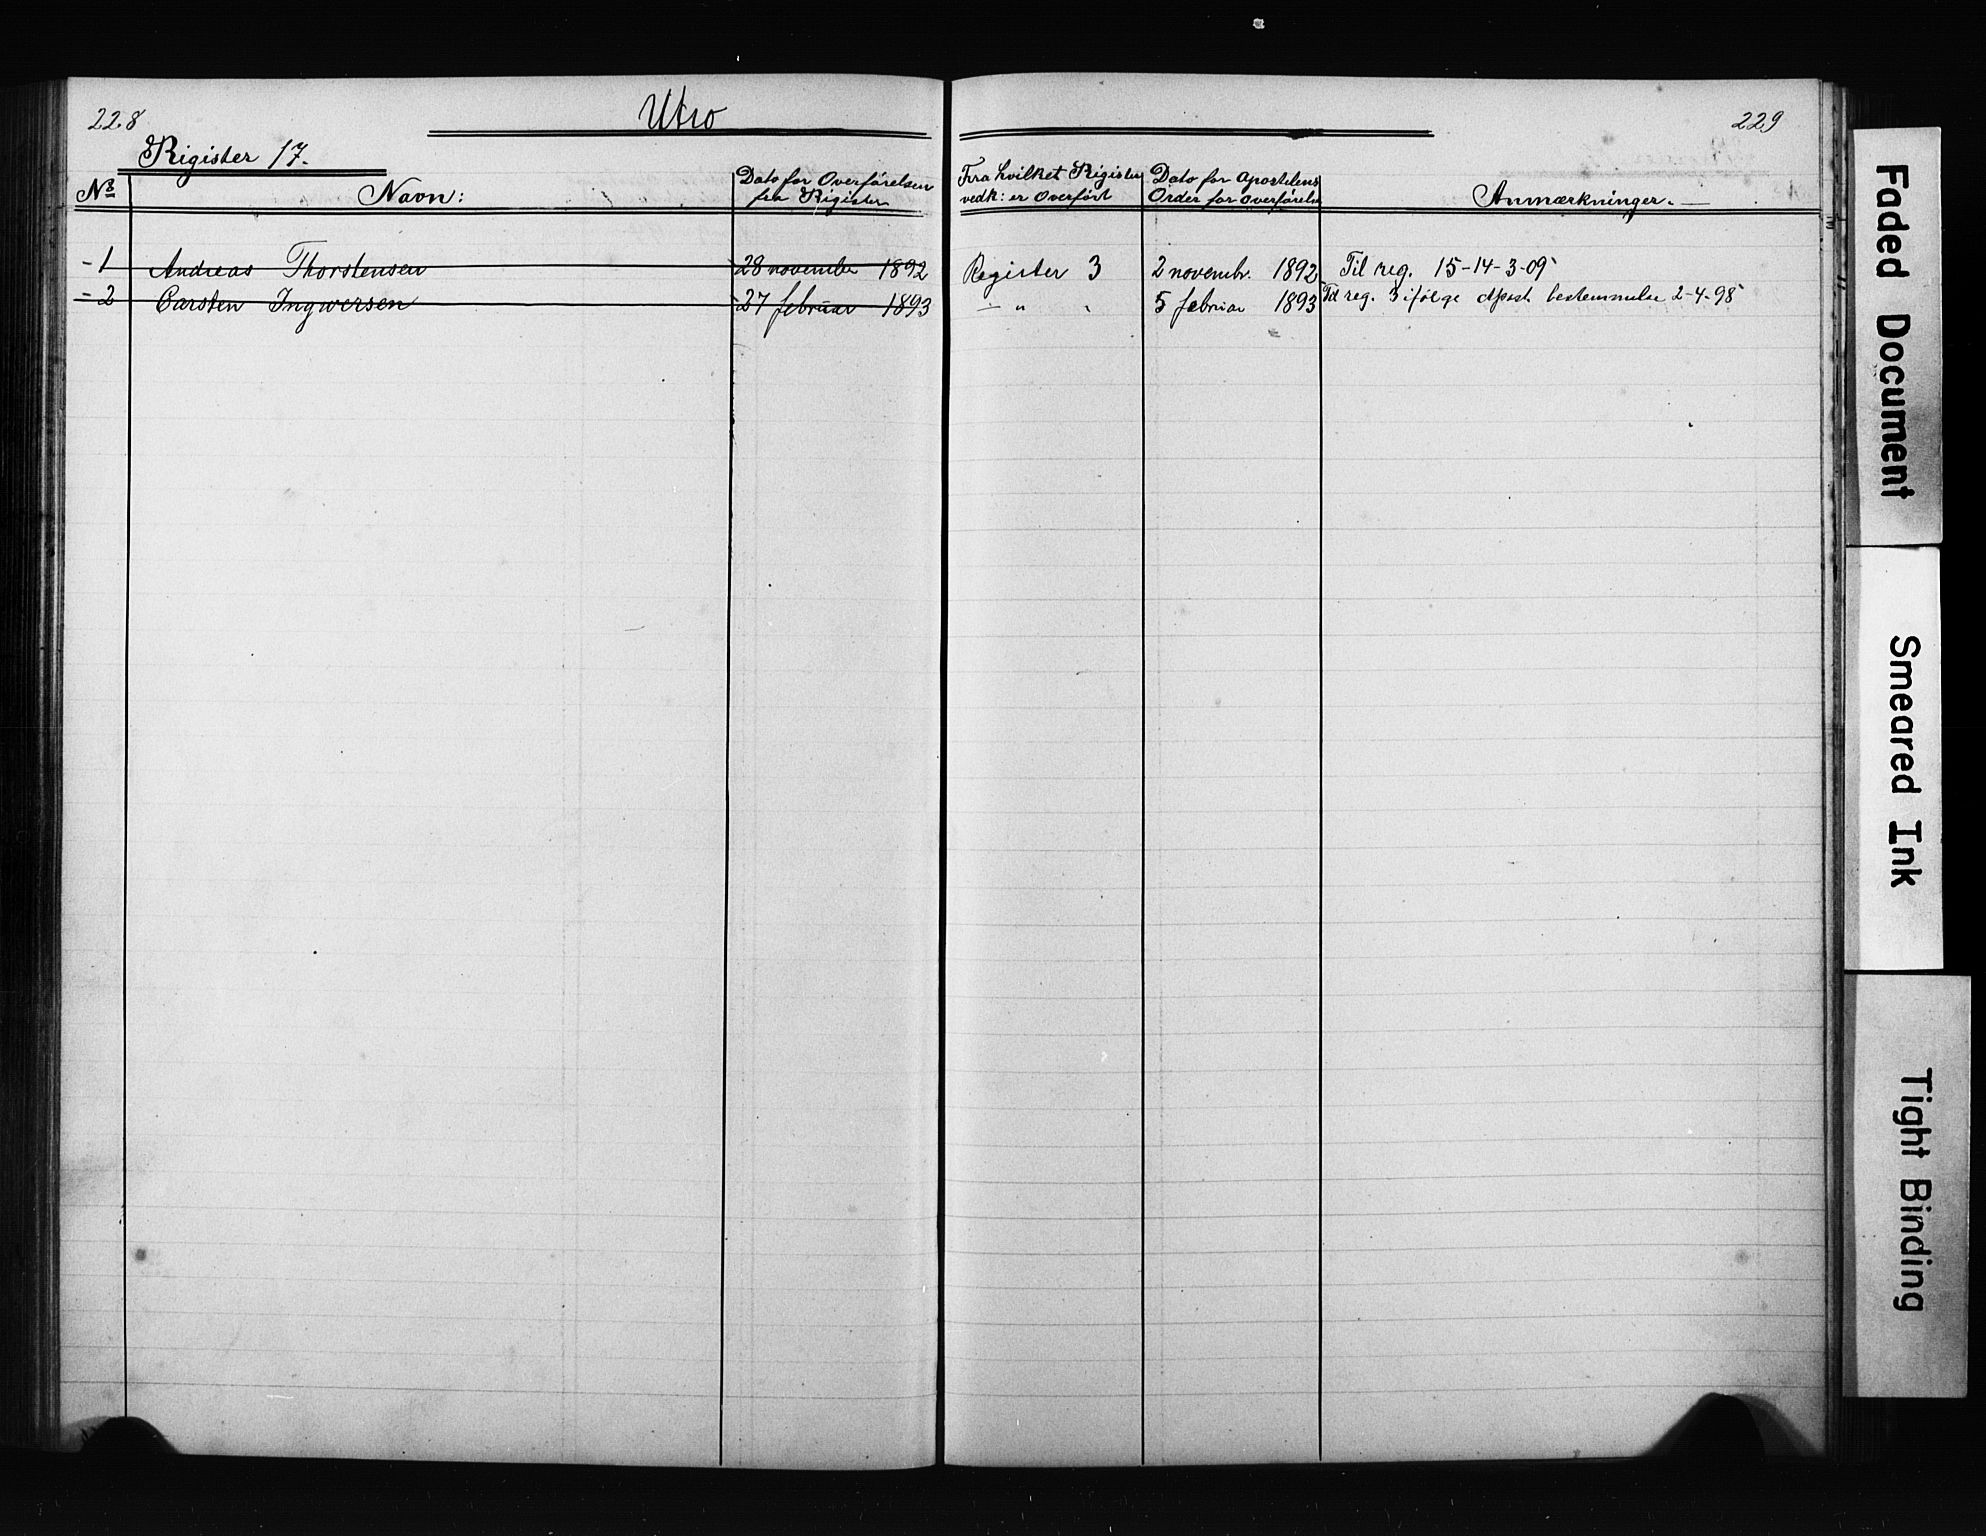 228
Utro
229
Register 17.
№
Navn:
Dato for Overførelsen
fra Register
Fra hvilket Register
vedk: er Overført
Dato for Apostelens
Order for Overførelse
Anmærkninger.
1 Andreas Thorstensen 28 november 1892 Register 3 2 novembr. 1892 Til reg. 15-14-3-09
2 Carsten Ingwersen 27 februar 1893 — " " 5 februar 1893 Til reg. 3 ifølge Apost. bestemmelse 2-4-98
Faded Document
Smeared Ink
Tight Binding